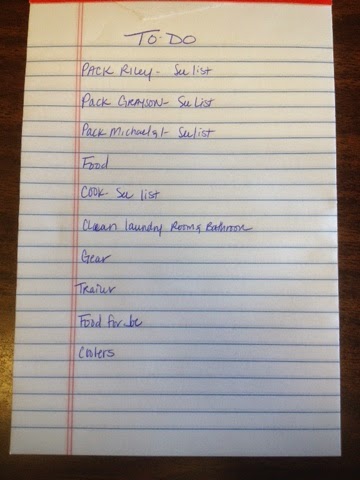 TO-DO
PACK Riley- See list
Pack GRAYSON- See List
Pack Michael & I- See list
Food
COOK- See list
Clean laundry Room & Bathroom
Gear
Trailer
Food for
Coolers